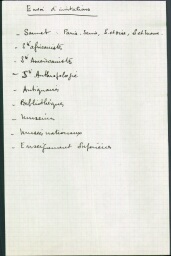 Envoi d'invitations
- Sennet - Paris. Semis, Lettres,
- Sté africaniste
- Sté Américaniste
- Sté Anthropologie
- Antiquaires
- Bibliothèques
- Museum
- Musées nationaux
- Enseignement Supérieur